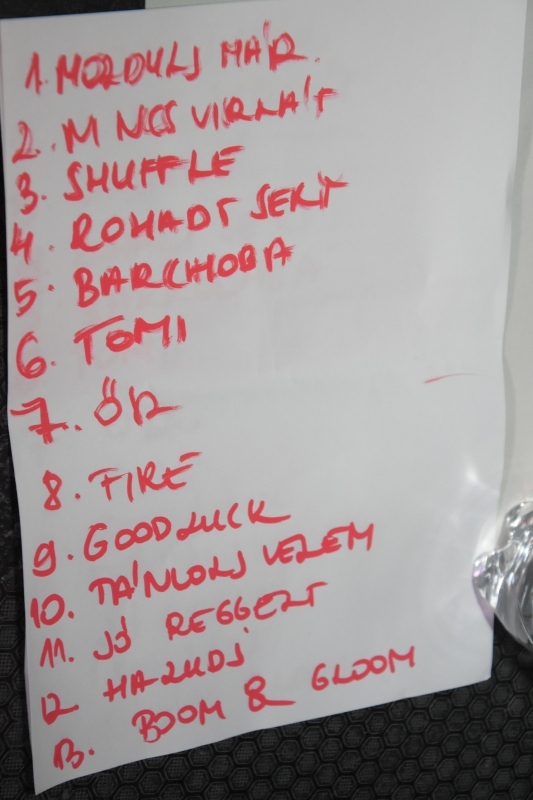 1. MOZDULJ MÁR.
2. M NCS VIRLÁT
3. SHUFFLE
4. ROHADT SEKY
5. BARCHOBA
6. TOMI
7. ŐR
8. FIRE
9. GOOD LUCK
10. TÁNCOLJ VELEM
11. JÓ REGGELT
12 HAZUDJ
13. BOOM & GLOOM